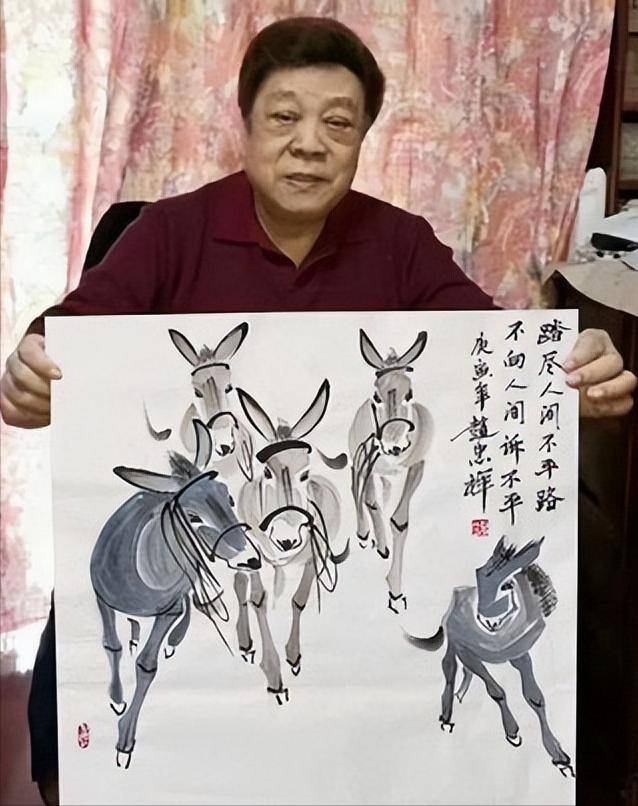 踏尽人间不平路
不向人间诉不平
庚寅年赵忠祥